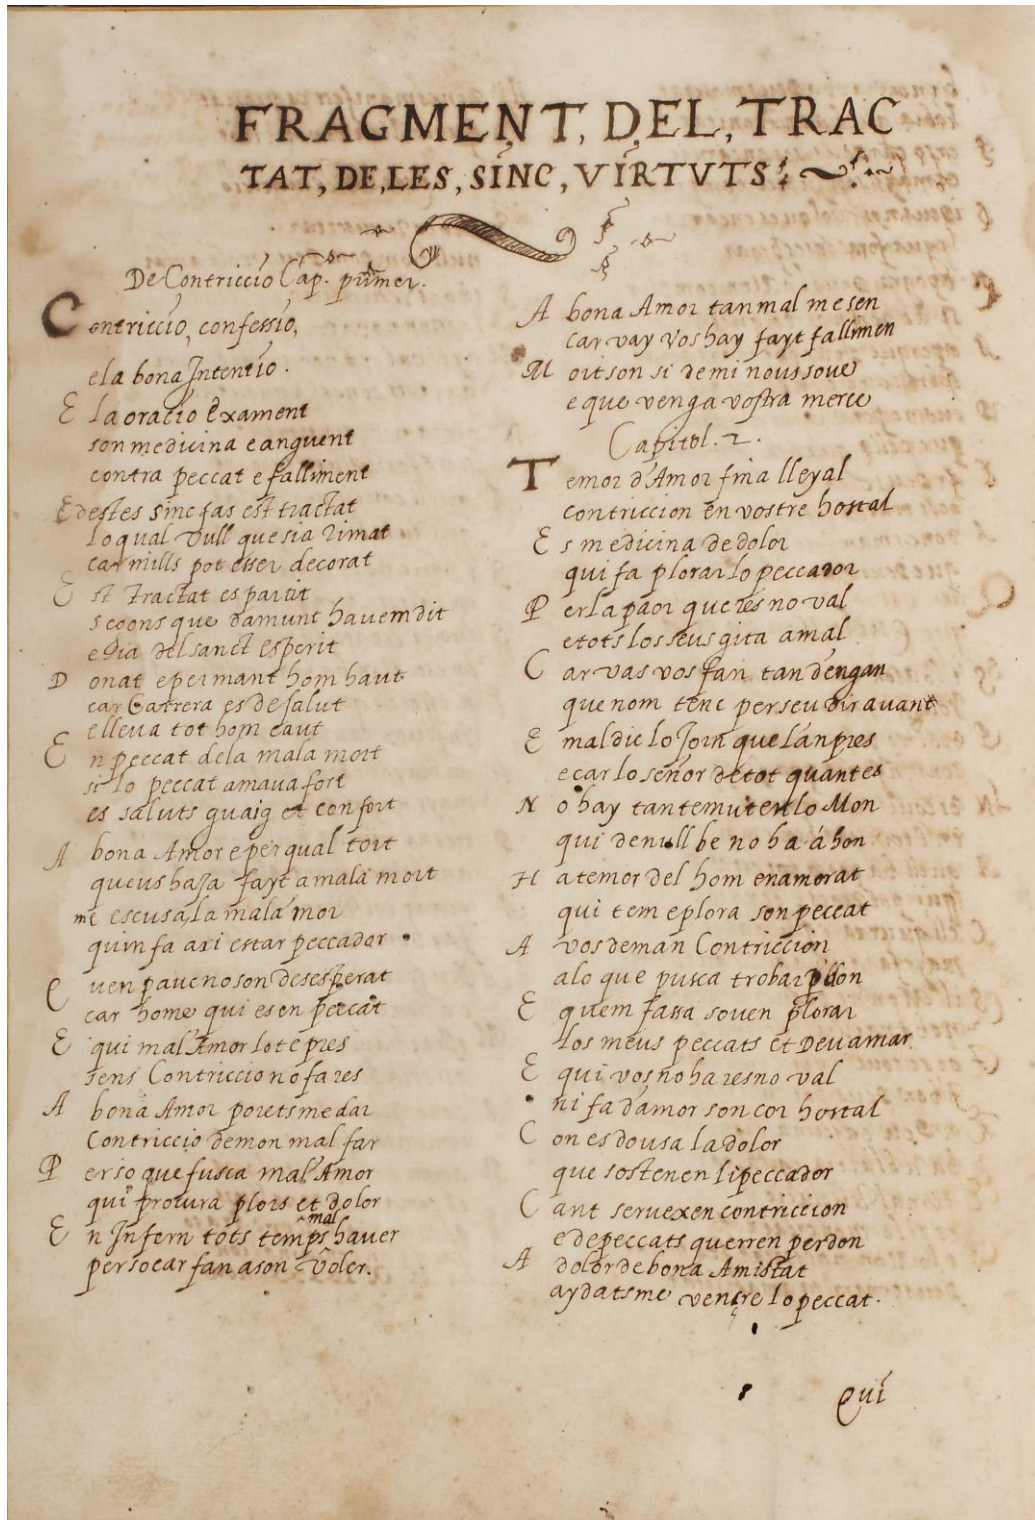 FRAGMENT, DEL, TRAC
TAT, DE, LES, SINC, VIRTVTS
De Contriccio Cap. primer.
Contriccio, confessio,
e la bona Intentio.
E la oratio Exament
son medicina e anguent
contra peccat e falliment
E destes sinc fas est tractat
lo qual vull que sia rimat
car mills pot esser decorat
Est Tractat es partit
segons que damunt havem dit
e del sanct Esperit
Donat e per mant hom haut
car Carrera es de salut
e lleva tot hom caut
En peccat de la mala mort
si lo peccat amava fort
es saluts guaig et confort
A bona Amor e per qual tort
queus haja fayt a mala mort
me escusa, la mala mor
quim fa axi estar peccador
Quen pauc no son desesperat
car home qui es en peccat
E qui mal Amor lo te pres
sens Contriccio no fa res
A bona Amor poretsme dar
Contriccio de mon mal far
Per so que fusca mal Amor
qui procura plors et dolor
En Infern tots temps mal haver
per so car fan a son voler.
A bona Amor tan mal me sen
car vay vos hay fayt fallimen
Moit son si de mi nous sove
e que venga vostra merce
Capitol. 2.
Temor d'Amor fina lleyal
contriccion en vostre hostal
Es medicina de dolor
qui fa plorar lo peccador
Per la paor que res no val
e tots los seus gita a mal
Car vas vos fan tan dengan
que nom tenc per seu dir avant
E maldic lo Jorn que lanpres
e car lo señor de tot quant es
No hay tan temut en lo Mon
qui de null be no ha áhon
Ha temor del hom enamorat
qui tem e plora son peccat
A vos deman Contriccion
a lo que pusca trobar
E quem fassa soven plorar
los meus peccats et Deu amar
E qui vos no ha res no val
ni fa d'amor son cor hostal
Con es dousa la dolor
que sostenen li peccador
Cant servexen contriccion
e de peccats querren perdon
A dolor de bona Amistat
aydatsme vencre lo peccat.
Qui